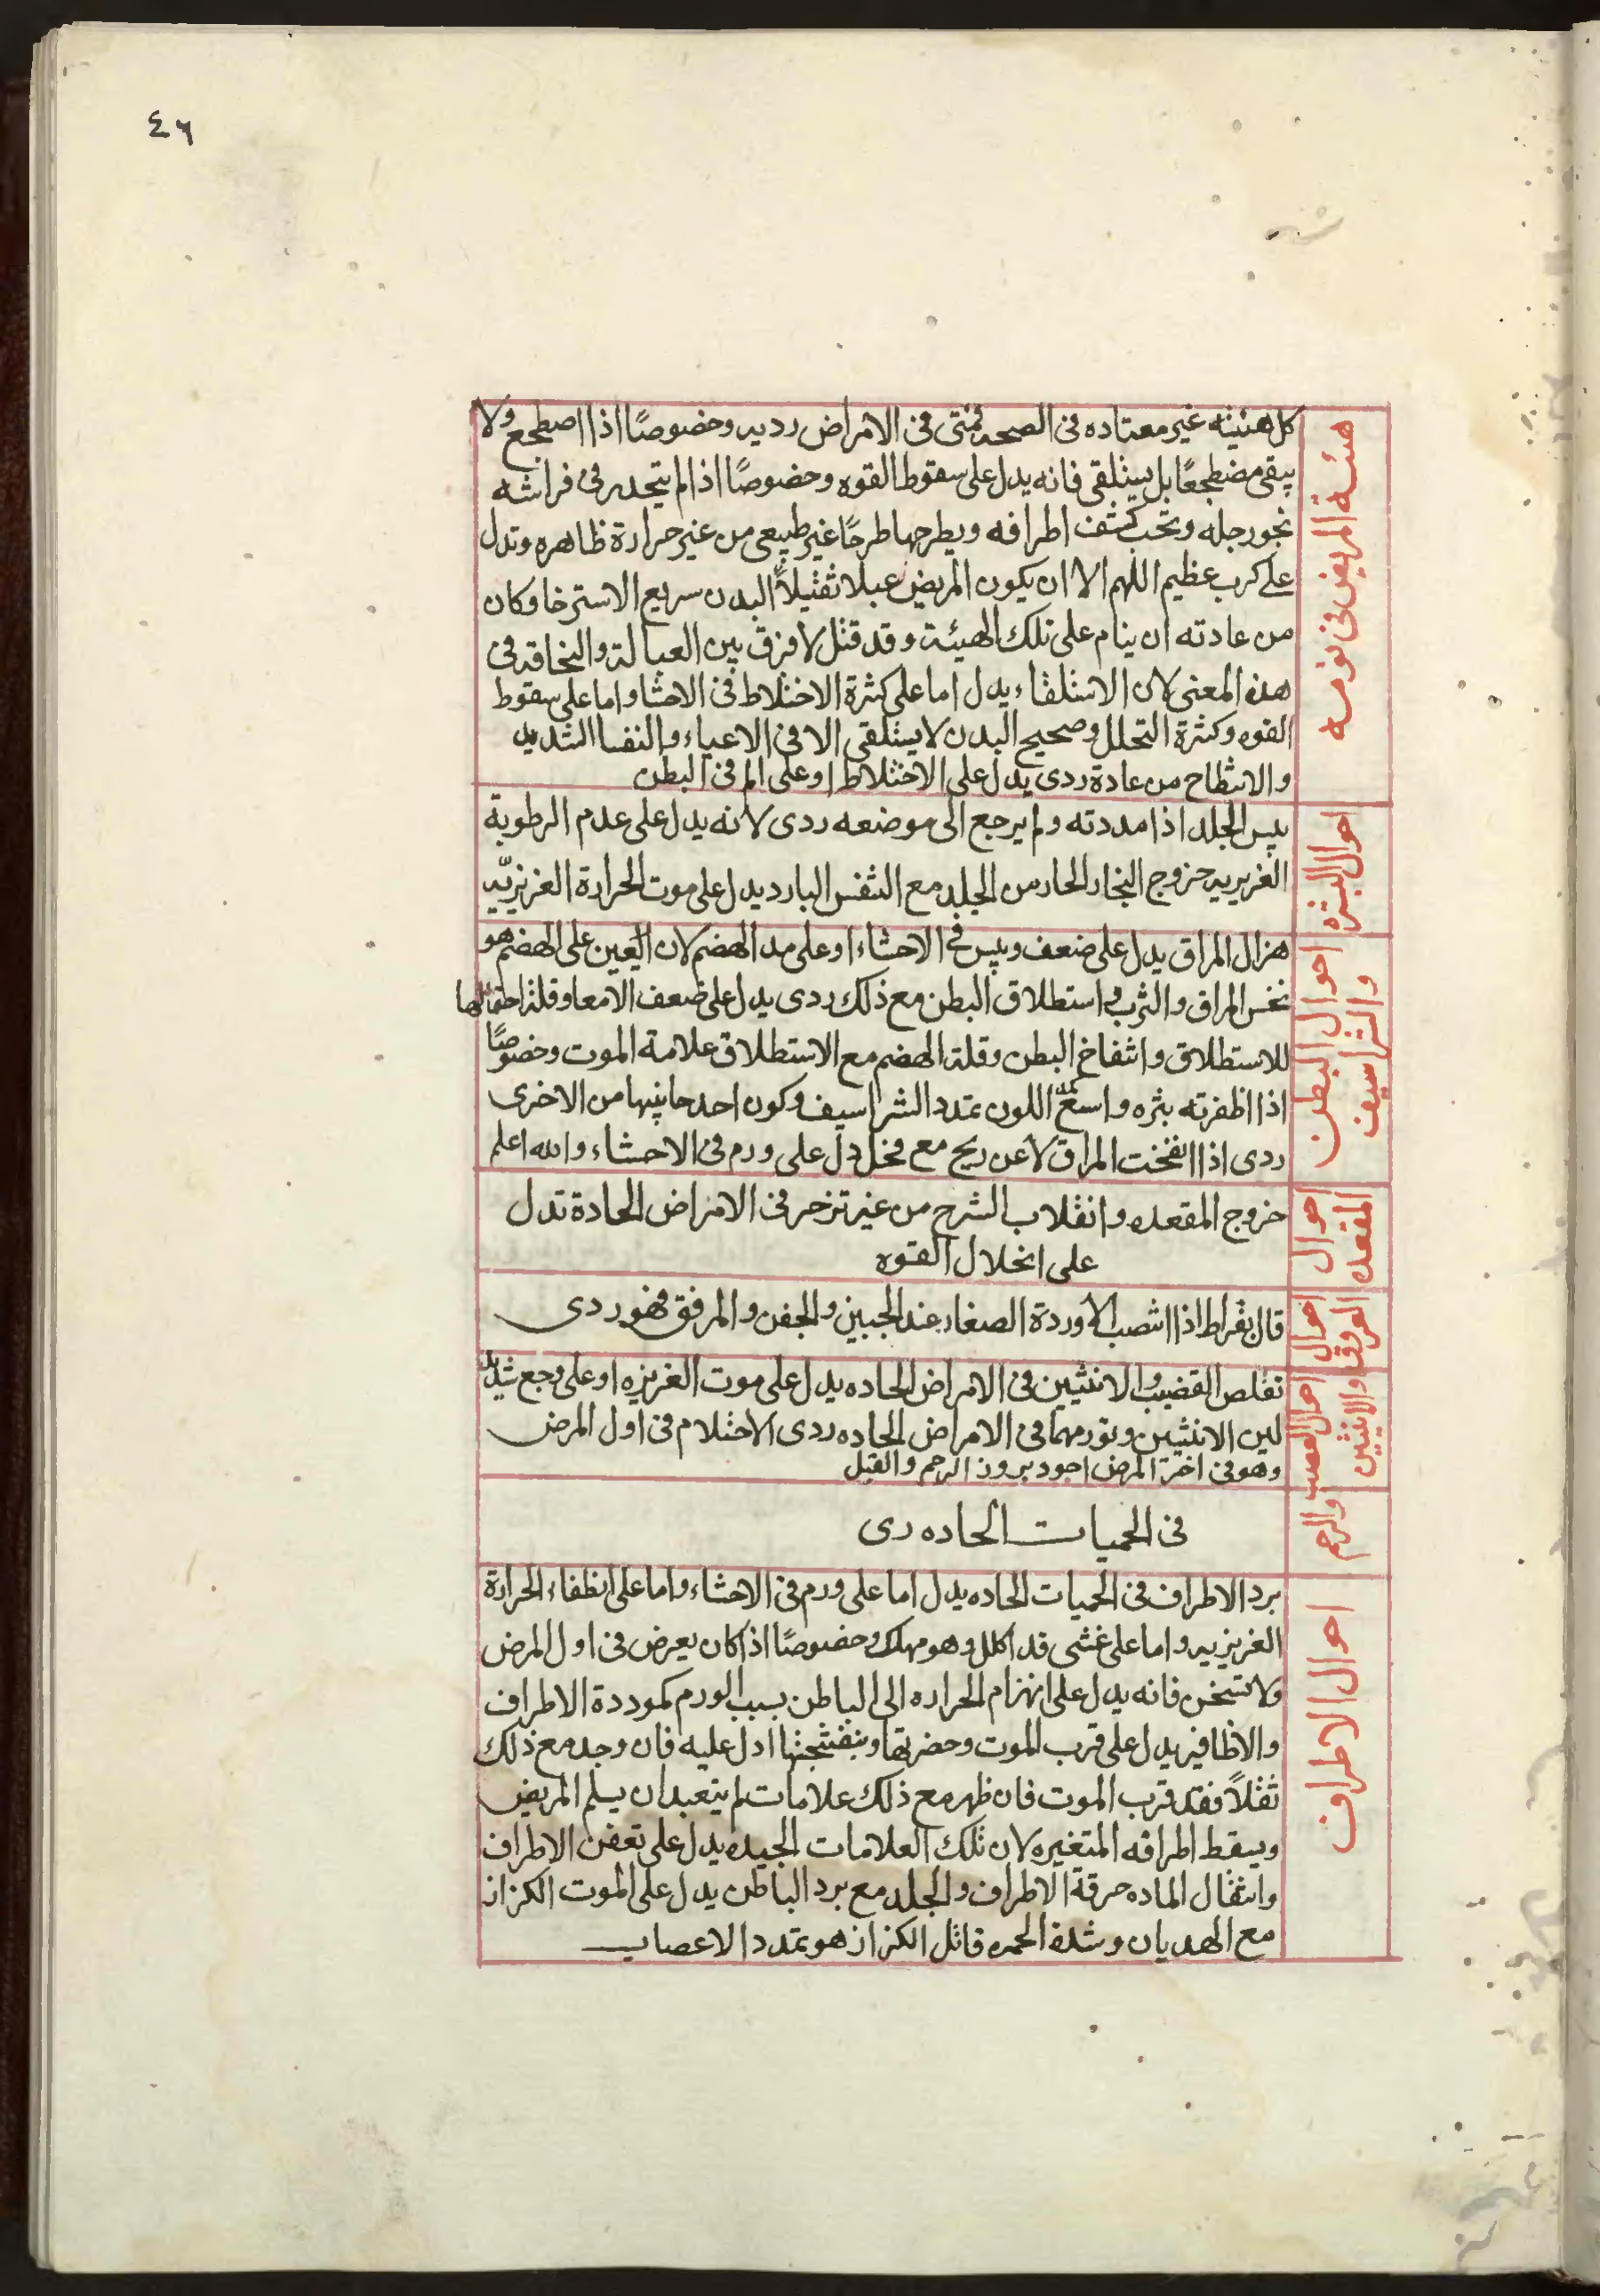 ٤٦
هيئة المريض فى نومه
كل هيئته غير معتاده فى الصحه فهى فى الامراض رديه وخصوصًا اذا اضطجع ولا
يبقى مضطجعًا بل يستلقى فانه يدل على سقوط القوه وخصوصًا اذا لم يتحدر فى فراشه
نحو رجله ويحب كشف اطرافه ويطرحها طرحًا غير طبيعى من غير حرارة ظاهره وتدل
على كرب عظيم اللهم الا ان يكون المريض عبلا ثقيلاً البدن سريع الاسترخا وكان
من عادته ان ينام على تلك الهيئة وقد قيل لا فرق بين العبالة والنحافه فى
هذه المعنى لان الاستلقاء يدل اما على كثرة الاختلاط فى الاحشا واما على سقوط
القوه وكثرة التحلل وصحيح البدن لا يستلقى الا فى الاعياء والنفسا الشديد
والانبطاح من عادة ردى يدل على الاختلاط او على الم فى البطن
احوال البشره
يبس الجلد اذا مددته ولم يرجع الى موضعه ردى لانه يدل على عدم الرطوبة
الغريزيه خروج البخار الحار من الجلد مع النفس البارد يدل على موت الحرارة الغريزيّه
احوال البطن
والشراسيف
هزال المراق يدل على ضعف ويبس فى الاحشاء او على مد الهضم لان العين على الهضم هو
نفس المراق والثرب واستطلاق البطن مع ذلك ردى يدل على ضعف الامعا وقلة احتمالها
للاستطلاق وانتفاخ البطن وقلة الهضم مع الاستطلاق علامة الموت وخصوصًا
اذا اظفرته بثره واسعة اللون تمدد الشراسيف وكون احد جانبيها من الاخرى
ردى اذا انفخت المراق لا عن ريح مع دل على ورم فى الاحشاء والله اعلم
احوال المقعده
خروج المقعده وانقلاب الشرح من غير تزحر فى الامراض الحادة تدل
على انحلال القوه
احوال العروق
قال بقراط اذا انتصب الاوردة الصغار عند الجبين والجفن والمرفق فهو ردى
احوال القضيب والانثيين
والرحم
تقلص القضيب والانثيين فى الامراض الحاده يدل على موت الغريزه او على وجع شديد
لين الانثيين وتورمهما فى الامراض الحاده ردى الاحتلام فى اول المرض
وهو فى اخر المرض اجود بروز الرحم والقبل
فى الحميات الحاده ردى
احوال الاطراف
برد الاطراف فى الحميات الحاده يدل اما على ورم فى الاحشاء واما على انطفاء الحرارة
الغريزيه واما على غشى قد اكلل وهو مهلك وخصوصًا اذا كان يعرض فى اول المرض
ولا تسخن فانه يدل على انهزام الحراره الى الباطن بسبب الورم كموددة الاطراف
والاظافير يدل على قرب الموت وحضرتها وبنفسجتها ادل عليه فان وجد مع ذلك
ثقلاً فقد قرب الموت فان ظهر مع ذلك علامات لم يتعبد ان يسلم المريض
ويسقط اطرافه المتغيره لان تلك العلامات الجيده يدل على تعفن الاطراف
وانتقال الماده حرقة الاطراف والجلد مع برد الباطن يدل على الموت الكزاز
مع الهديان وشدة الحمره قاتل الكزاز هو تمدد الاعصاب